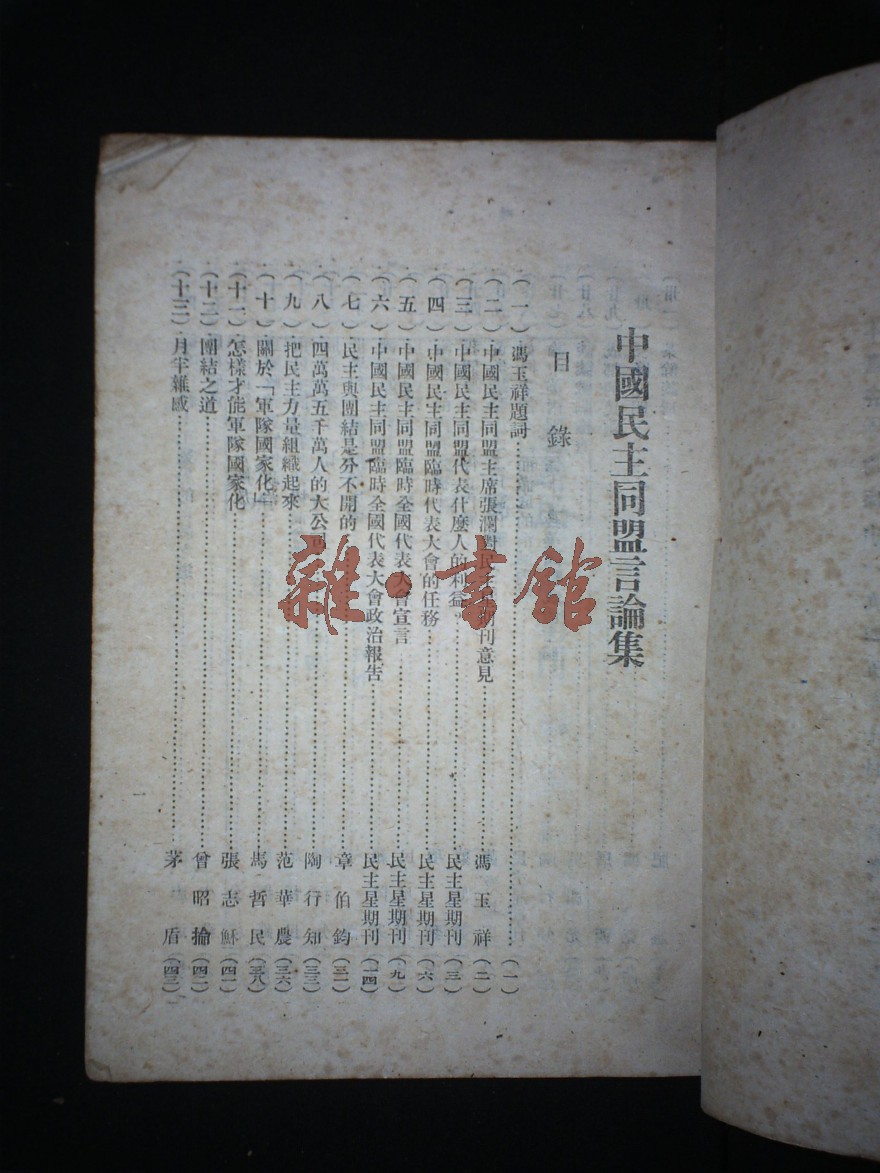 中國民主同盟言論集
目錄
(一)馮玉祥題詞……(一)
(二)中國民主同盟主席張瀾對民主星期刊意見……馮玉祥(二)
(三)中國民主同盟代表什麼人的利益……民主星期刊(三)
(四)中國民主同盟臨時代表大會的任務……民主星期刊(六)
(五)中國民主同盟臨時全國代表大會宣言……民主星期刊(九)
(六)中國民主同盟臨時全國代表大會政治報告……民主星期刊(一四)
(七)民主與團結是分不開的……章伯鈞(三一)
(八)四萬萬五千萬人的大公司……陶行知(三三)
(九)把民主力量組織起來……范華農(三六)
(十)關於「軍隊國家化」……馬哲民(三八)
(十一)怎樣才能軍隊國家化……張志龢(四一)
(十二)團結之道……曾昭掄(四二)
(十三)月半雜感……茅盾(四三)
雜·書館